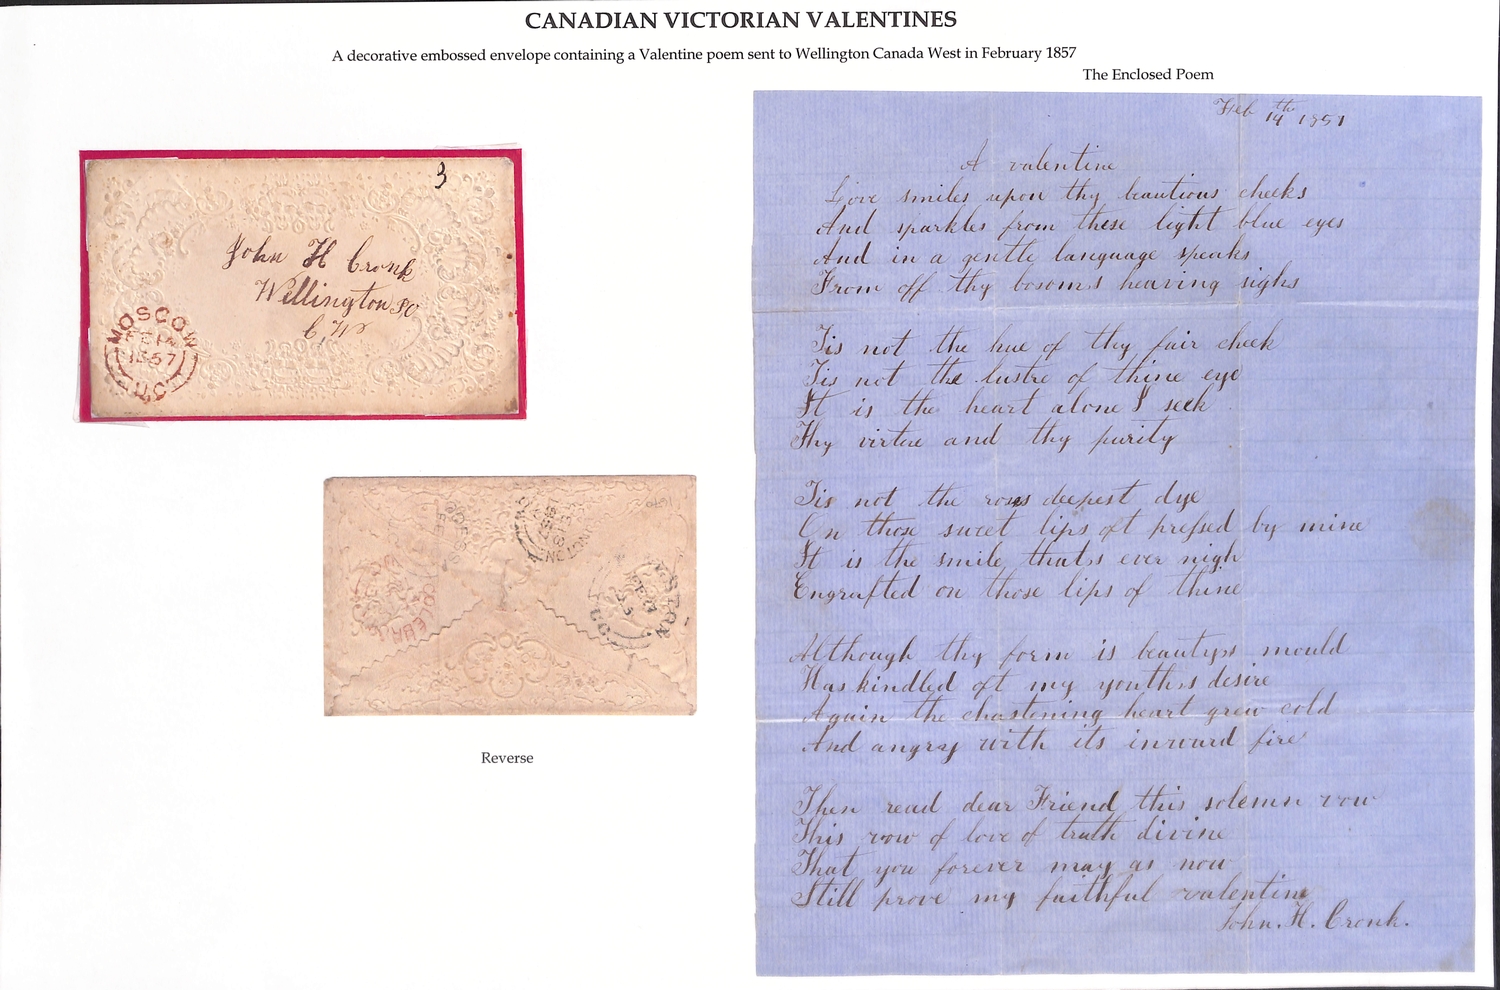 CANADIAN VICTORIAN VALENTINES
A decorative embossed envelope containing a Valentine poem sent to Wellington Canada West in February 1857
The Enclosed Poem
3
John H Cronk
Wellington PO
C, W
MOSCOW
FE 14
1857
Reverse
Feb 14th 1857
A valentine
Love smiles upon thy beautious cheeks
And sparkles from these light blue eyes
And in a gentle language speaks
From off thy bosoms heaving sighs
Tis not the hue of thy fair cheek
Tis not the lustre of thine eye
It is the heart alone I seek
Thy virtue and thy purity
Tis not the roses deepest dye
On those sweet lips oft pressed by mine
It is the smile thats ever nigh
Engrafted on those lips of thine
Although thy form is beautys mould
Has kindled oft my youths desire
Again the chastening heart grew cold
And angry with its inward fire
Then read dear Friend this solemn vow
This vow of love of truth divine
That you forever may as now
Still prove my faithful valentine
John. H. Cronk.